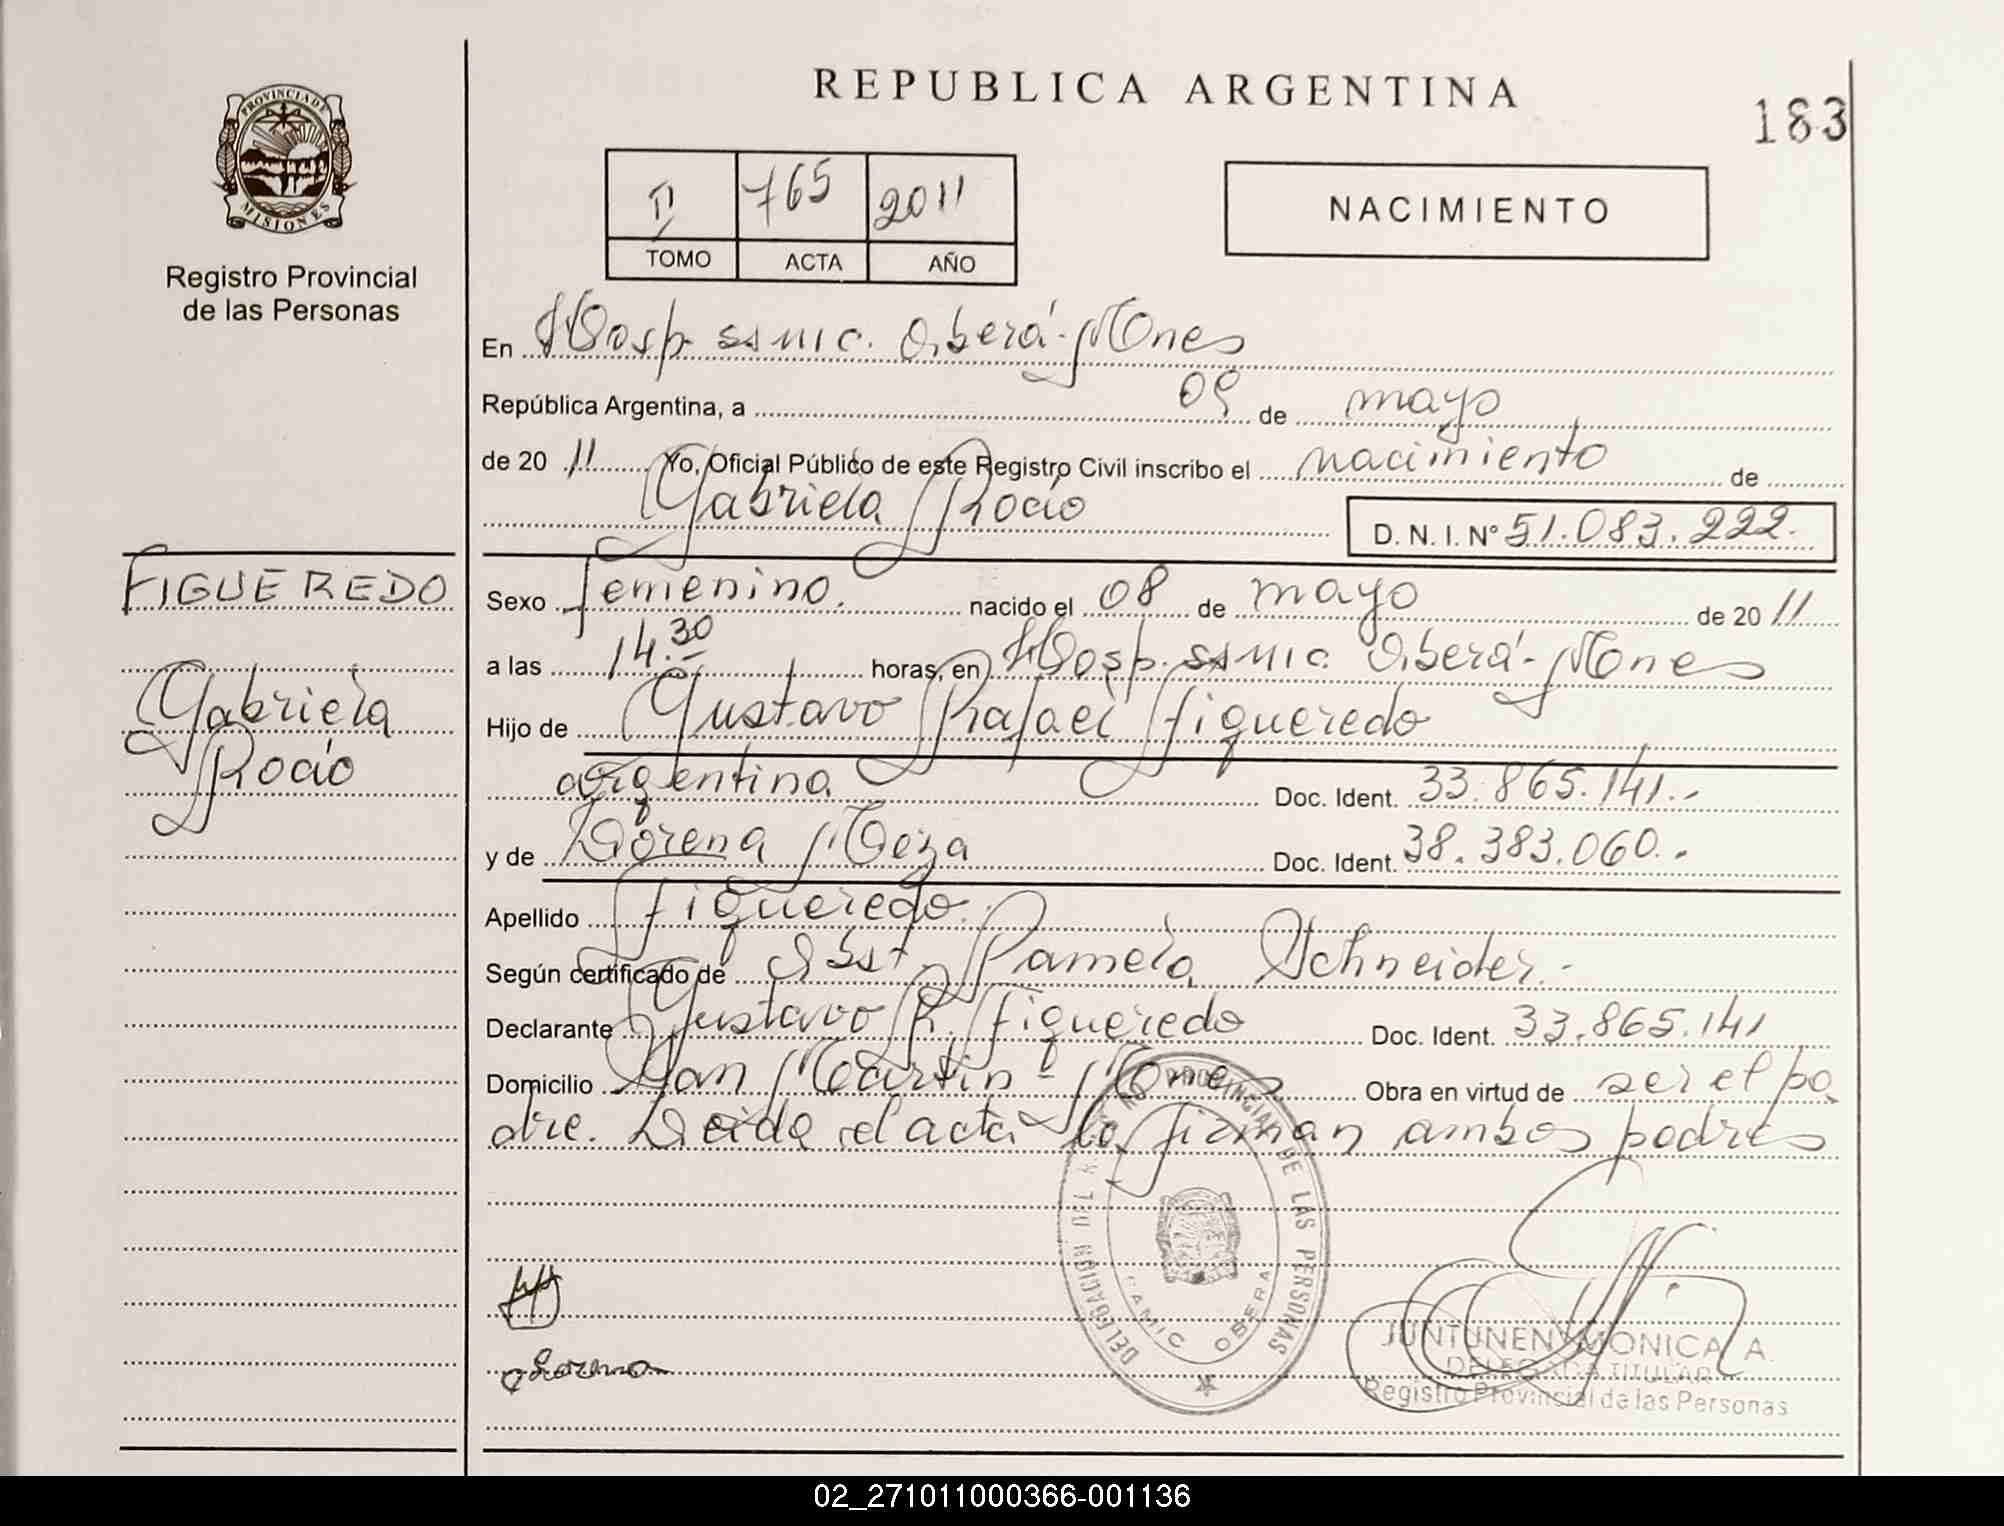 REPUBLICA ARGENTINA
183
PROVINCIA DE
MISIONES
Registro Provincial
de las Personas
II 765 2011
TOMO ACTA AÑO
NACIMIENTO
En Hosp. SSMIC. Oberá-Mnes
República Argentina, a 09 de mayo
de 20 11 Yo, Oficial Público de este Registro Civil inscribo el nacimiento de
Gabriela Rocío D. N. I. Nº 51.083.222.
FIGUEREDO
Gabriela
Rocío
Sexo femenino. nacido el 08 de mayo de 20 11
a las 14.30 horas, en Hosp. SSMIC. Oberá-Mnes
Hijo de Gustavo Rafael Figueredo
argentina Doc. Ident. 33.865.141.-
y de Lorena Meza Doc. Ident. 38.383.060.-
Apellido Figueredo.
Según certificado de Obst. Pamela Schneider.-
Declarante Gustavo R. Figueredo Doc. Ident. 33.865.141
Domicilio San Martin - Mnes Obra en virtud de ser el pa
dre. Leida el acta la firman ambos padres
PROVINCIAL DE LAS PERSONAS
DELEGACION DEL
SAMIC OBERA
Lorena
JUNTUNEN MONICA A
DELEGADA TITULAR
Registro Provincial de las Personas
02_271011000366-001136